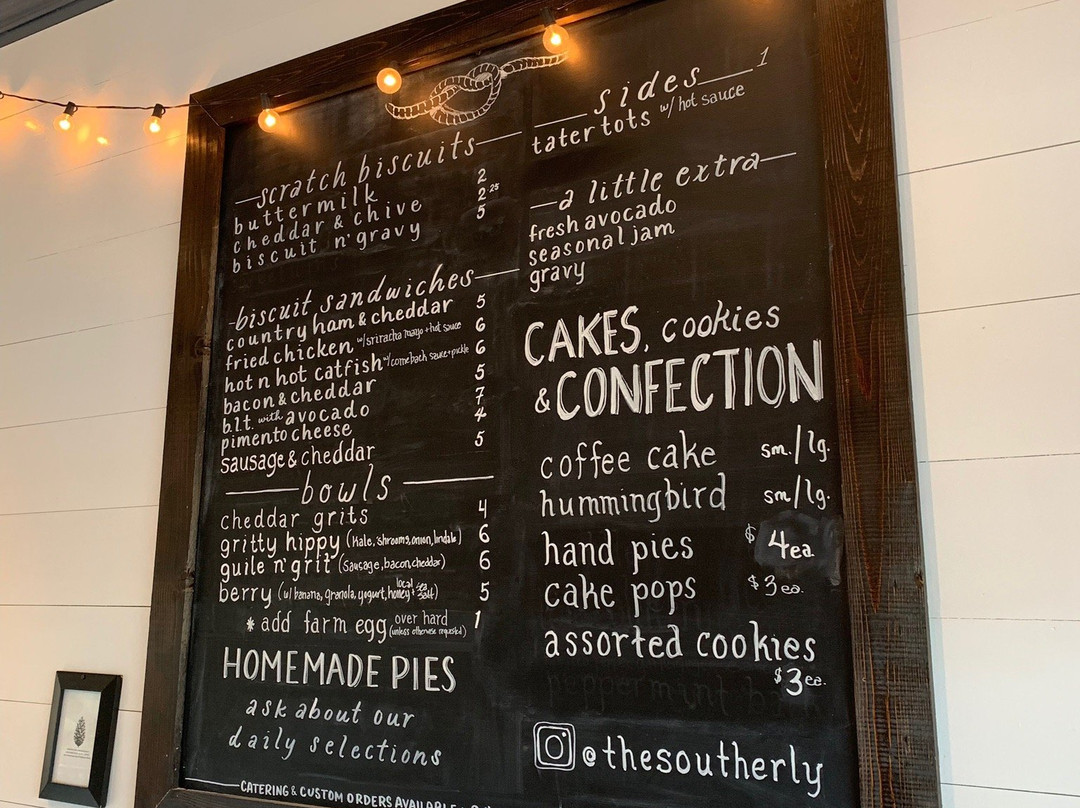 scratch biscuits
buttermilk 2
cheddar & chive 2 25
biscuit n' gravy 5
biscuit sandwiches
country ham & cheddar 5
fried chicken w/ sriracha mayo + hot sauce 6
hot n hot catfish w/ comeback sauce + pickle 6
bacon & cheddar 5
b.l.t. with avocado 7
pimento cheese 4
sausage & cheddar 5
bowls
cheddar grits 4
gritty hippy (kale, 'shrooms, onion, lindale) 6
guile n' grit (sausage, bacon, cheddar) 6
berry (w/ banana, granola, yogurt, local honey + sea salt) 5
* add farm egg over hard (unless otherwise requested) 1
HOMEMADE PIES
ask about our
daily selections
CATERING & CUSTOM ORDERS AVAILABLE
sides 1
tater tots w/ hot sauce
a little extra
fresh avocado
seasonal jam
gravy
CAKES, cookies
& CONFECTION
coffee cake sm./lg.
hummingbird sm/lg.
hand pies $4ea
cake pops $3ea.
assorted cookies
$3ea.
peppermint
@thesoutherly